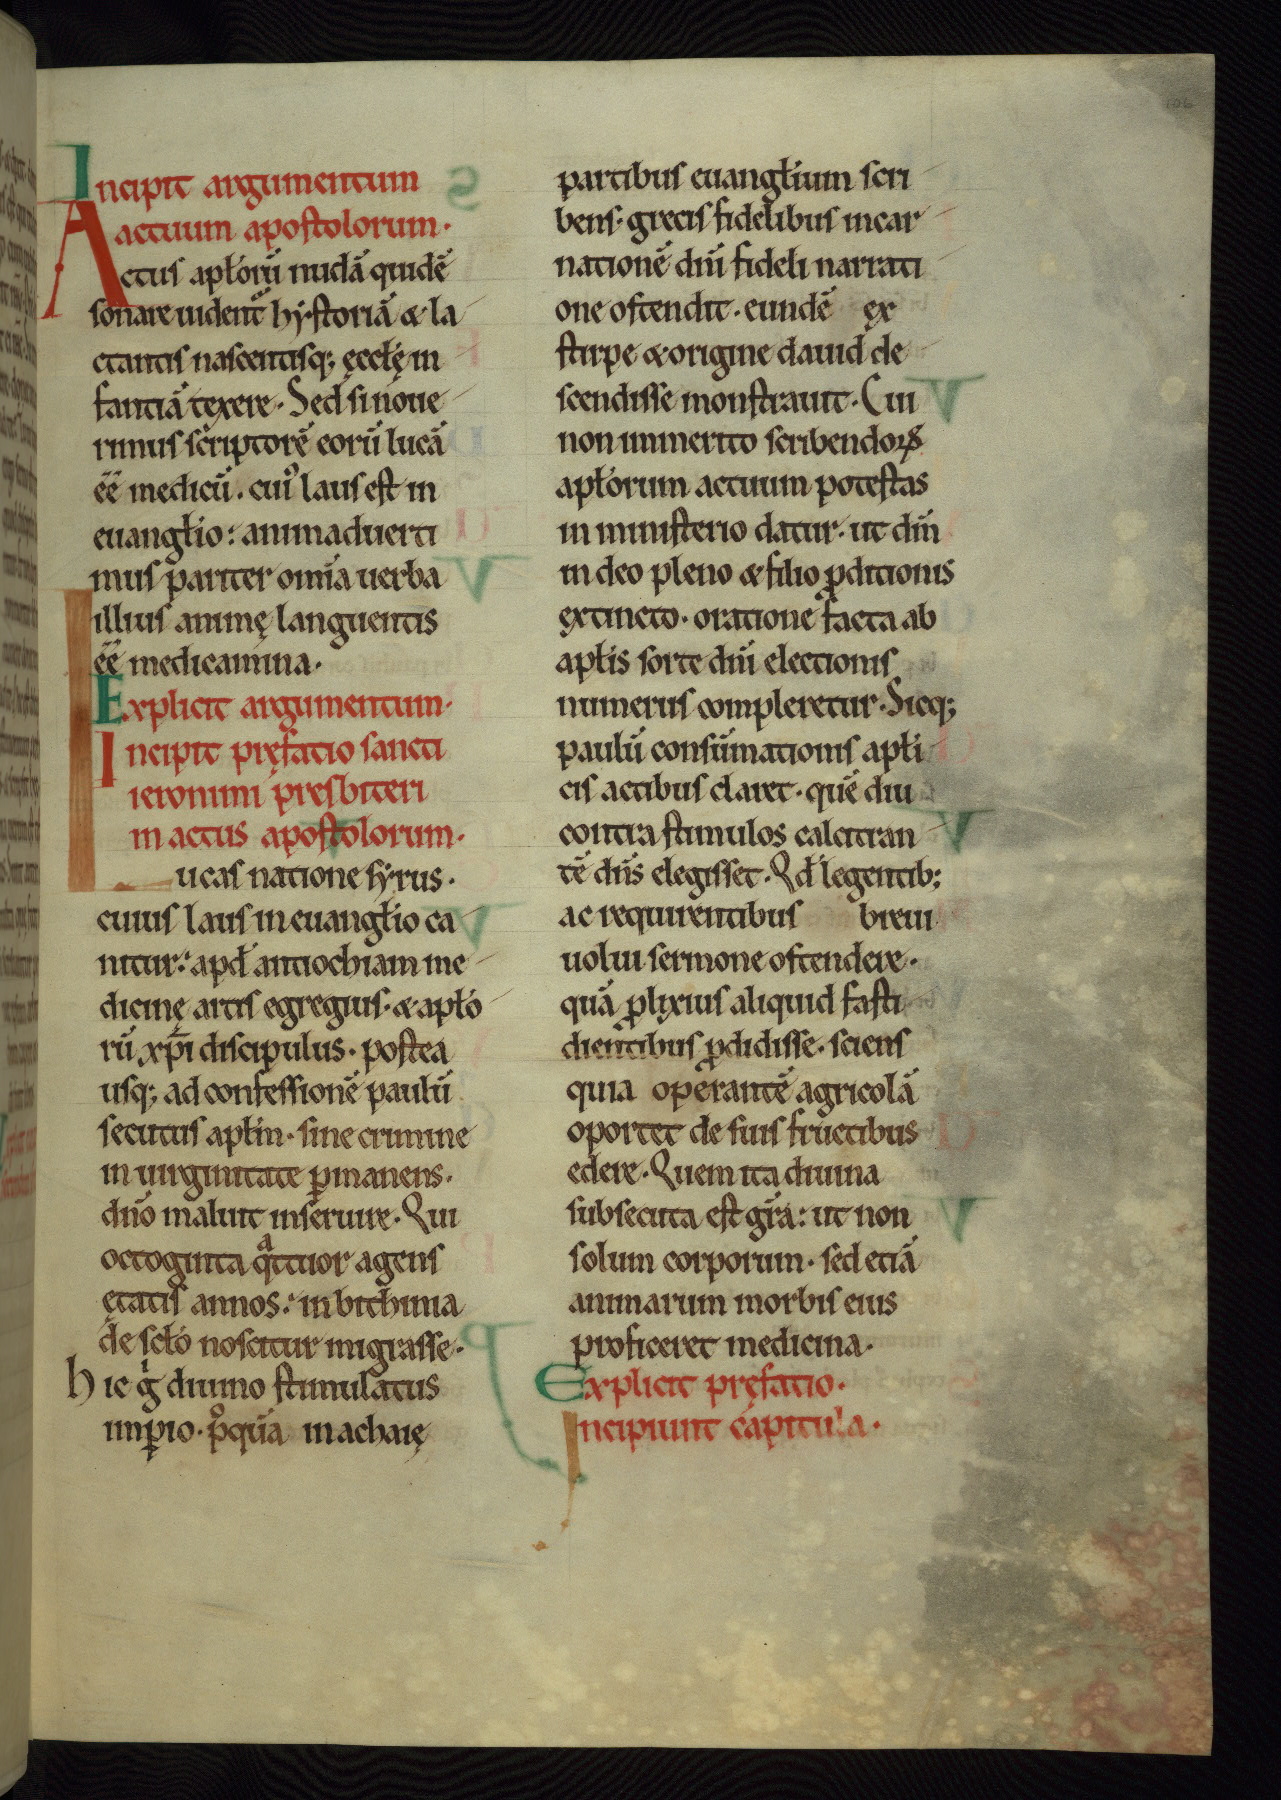 Incipit argumentum
actuum apostolorum·
Actus apłorū nudā quidē
sonare uident᷑ hẏstoriā & la
ctantis nascentisq; ęccłę in
fantiā texere· Sed si noue
rimus scriptorē eorū lucā
ēē medicū· cui᷒ laus est in
euangłio: animaduerti
mus pariter om̄ia uerba
illius animę languentis
ēē medicamina·
Explicit argumentum·
Incipit pręfatio sancti
ieronimi presbiteri
in actus apostolorum·
Lucas natione sẏrus·
cuius laus in euangłio ca
nitur: apđ antiochiam me
dicinę artis egregius· & apło
rū xp̄i discipulus· postea
usq; ad confessionē paulū
secutus apłm· sine crimine
in uirginitate ꝑmanens·
dn̄o maluit inseruire· Qui
octoginta qͣttuor agens
ętatis annos: in bithinia
de scło noscitur migrasse·
hic gͥ diuino stimulatus
imꝑio· pͦquā in achaię
partibus euangłium scri
bens· grecis fidelibus incar
nationē dn̄i fideli narrati
one ostendit· eundē ex
stirpe & origine dauid de
scendisse monstrauit· Cui
non immerito scribendoꝝ
apłorum actuum potestas
in ministerio datur· ut dn̄m
in deo pleno & filio ꝑditionis
extincto· oratione facta ab
apłis sorte dn̄i electionis
numerus compleretur· Sicq;
paulū consūmationis apłi
cis actibus claret· quē diu
contra stimulos calcitran
tē dn̄s elegisset· Qđ legentib;
ac requirentibus breui
uolui sermone ostendere·
quā ꝓlixius aliquid fasti
dientibus ꝓdidisse· sciens
quia operantē agricolā
oportet de suis fructibus
edere· Quem ita diuina
subsecuta est gr̄a: ut non
solum corporum· sed etiā
animarum morbis eius
proficeret medicina·
Explicit pręfatio·
Incipiunt capitula·